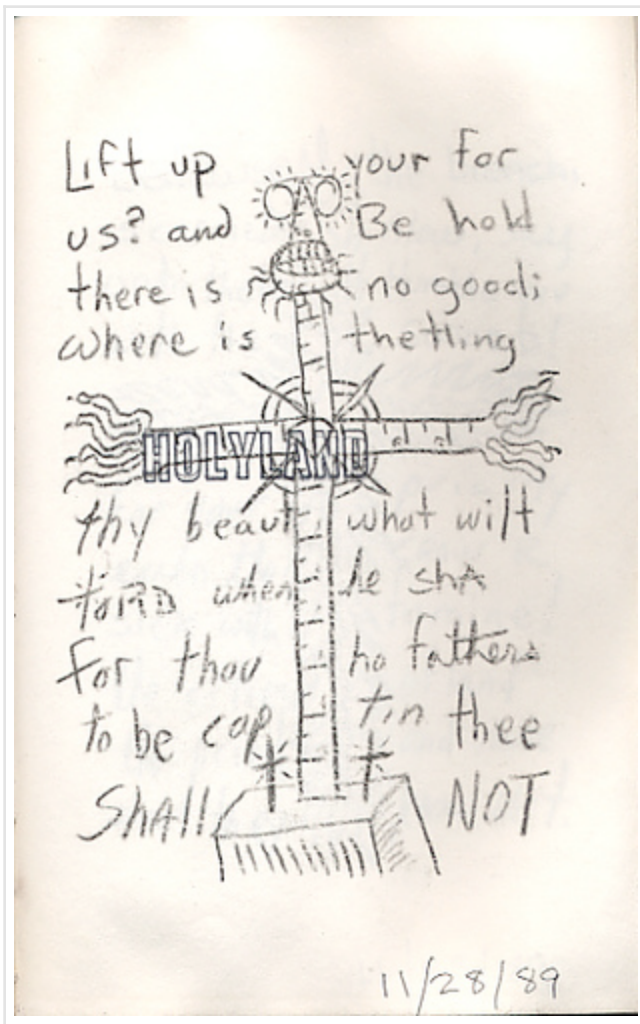 Lift up your for
us? and Be hold
there is no good;
where is thetling
HOLYLAND
thy beaut what wilt
toRD when he shA
for thou ho fathers
to be cap tin thee
Shall NOT
11/28/89